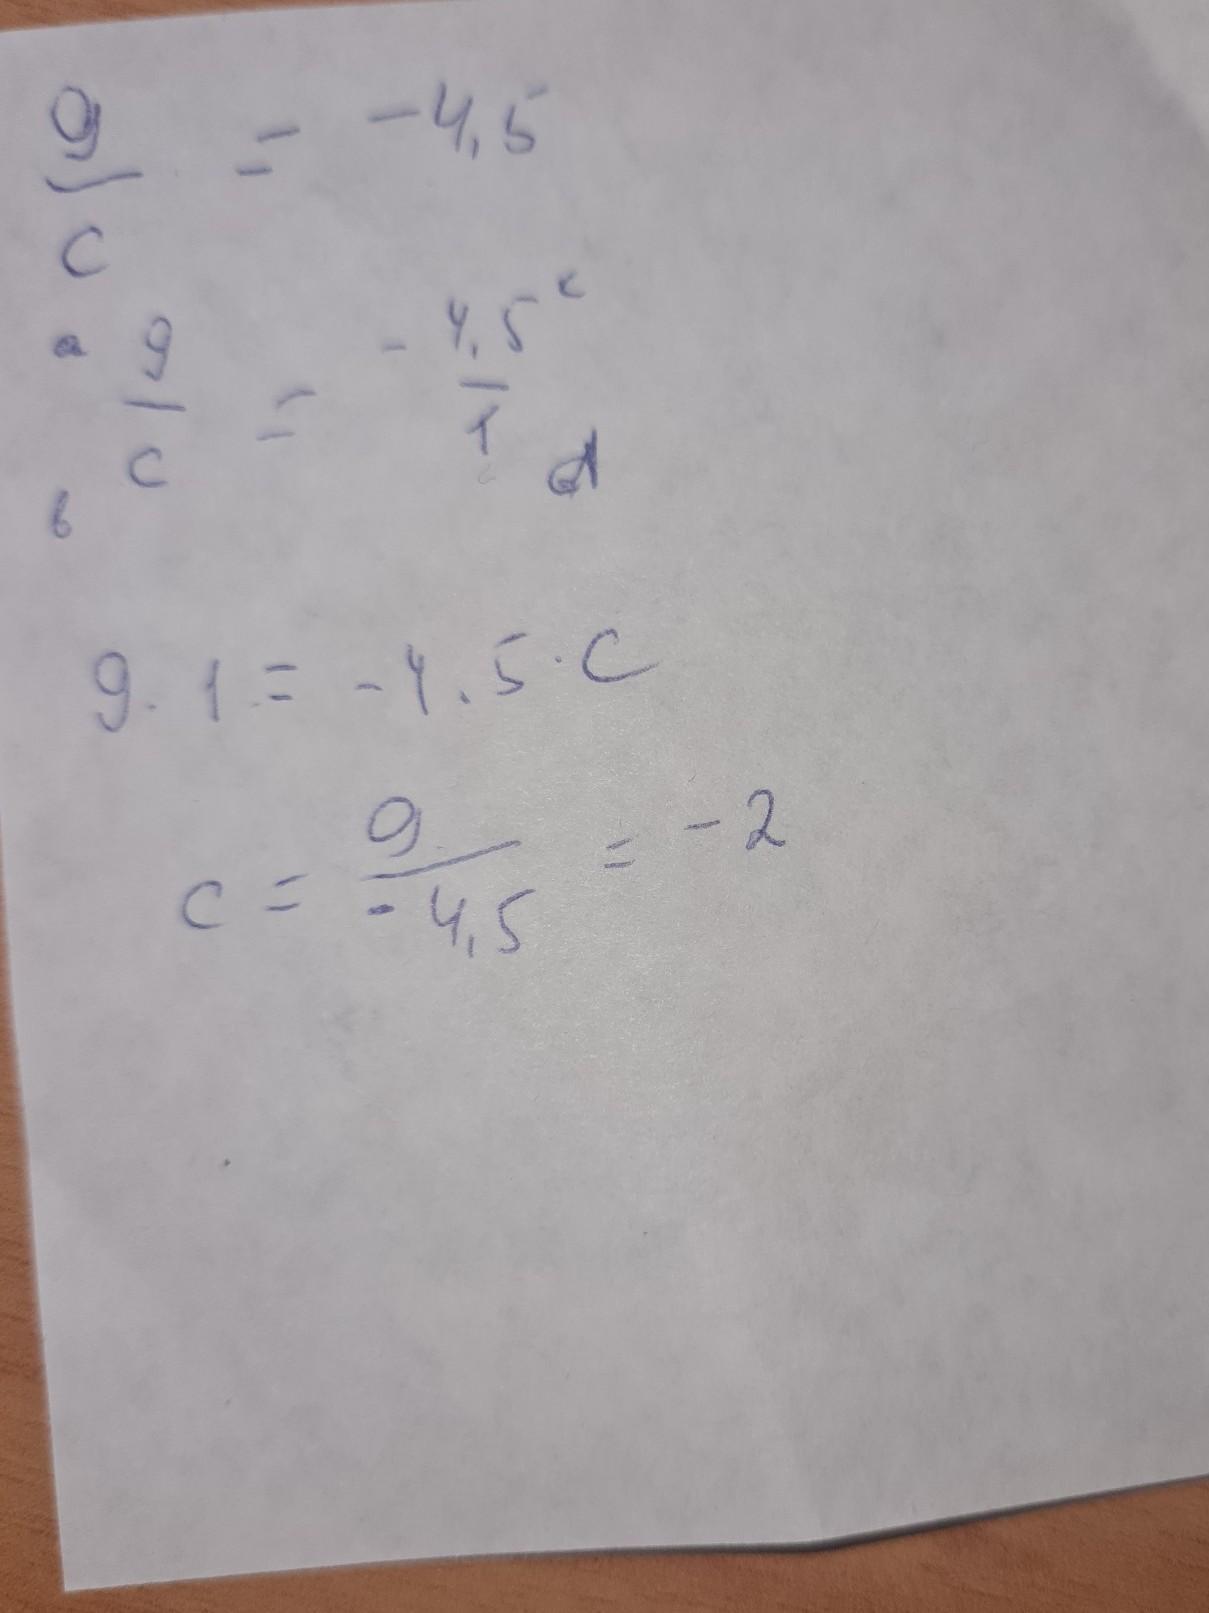 9/c = -4,5
a 9/c b = -4.5/1 c d
9 · 1 = -4.5 · c
c = 9/-4,5 = -2